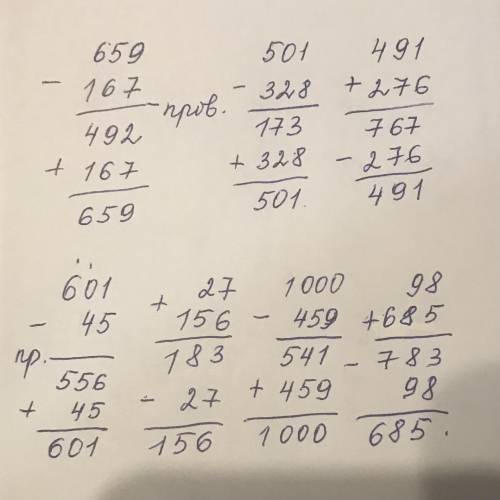 659 501 491
- 167 - 328 + 276
492 - пров. 173 767
+ 167 + 328 - 276
659 501. 491
601 + 27 1000 98
- 45 156 - 459 + 685
пр. 183 541 - 783
556 - 27 + 459 98
+ 45 156 1000 685.
601